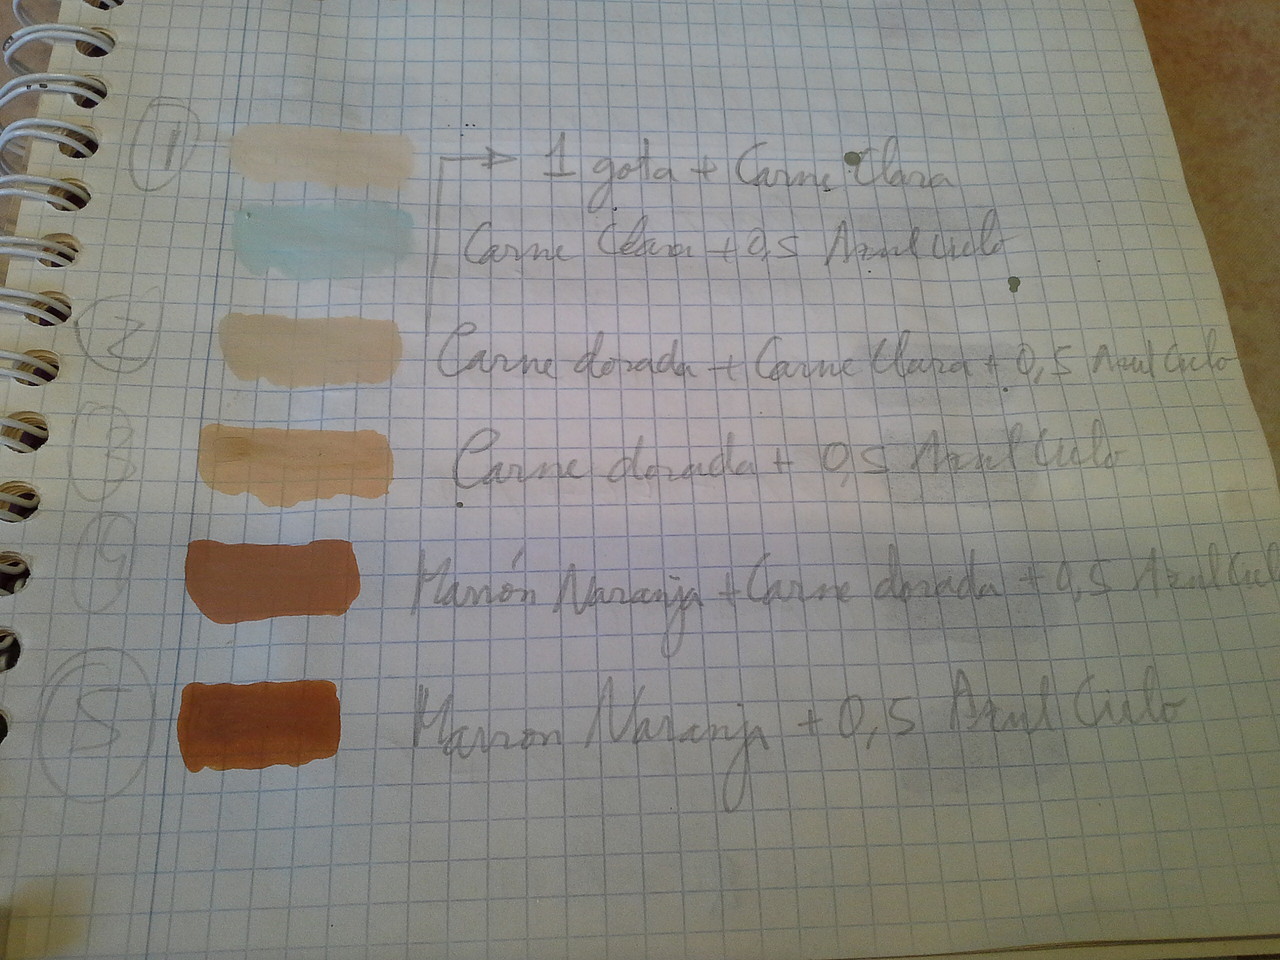 1 → 1 gota + Carne Clara
Carne Clara + 0,5 Azul Cielo
2 Carne dorada + Carne Clara + 0,5 Azul Cielo
3 Carne dorada + 0,5 Azul Cielo
4 Marrón Naranja + Carne dorada + 0,5 Azul Ciel
5 Marron Naranja + 0,5 Azul Cielo